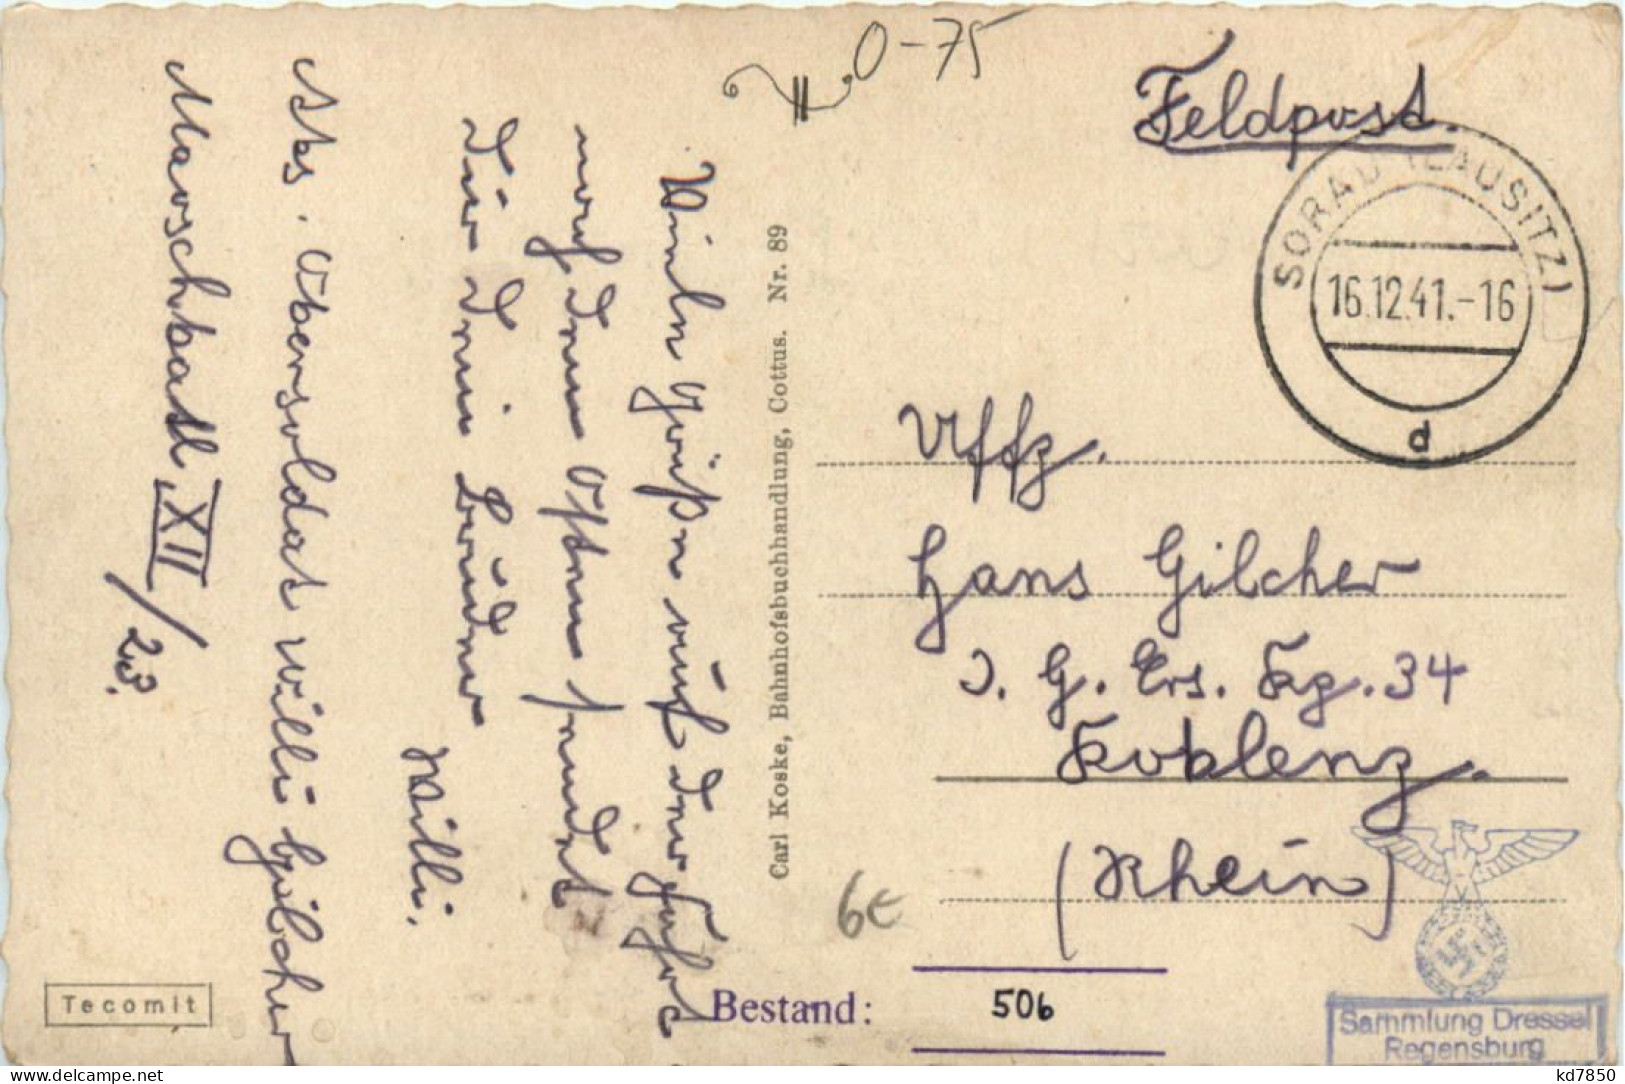 0-75
Feldpost.
SORAU (LAUSITZ)
16.12.41.-16
d
Uffz.
Hans Gilcher
J. G. Ers. Kp. 34
Koblenz.
(Rhein)
Viele Grüße auf der Fahrt
nach dem Osten sendet
Dir Dein Bruder
Willi.
Abs. Obersoldat Willi Gilcher
Marschbatl. XII/23.
Carl Koske, Bahnhofsbuchhandlung, Cottus. Nr. 89
6€
Tecomit
Bestand: 506
Sammlung Dressel
Regensburg
www.delcampe.net
kd7850